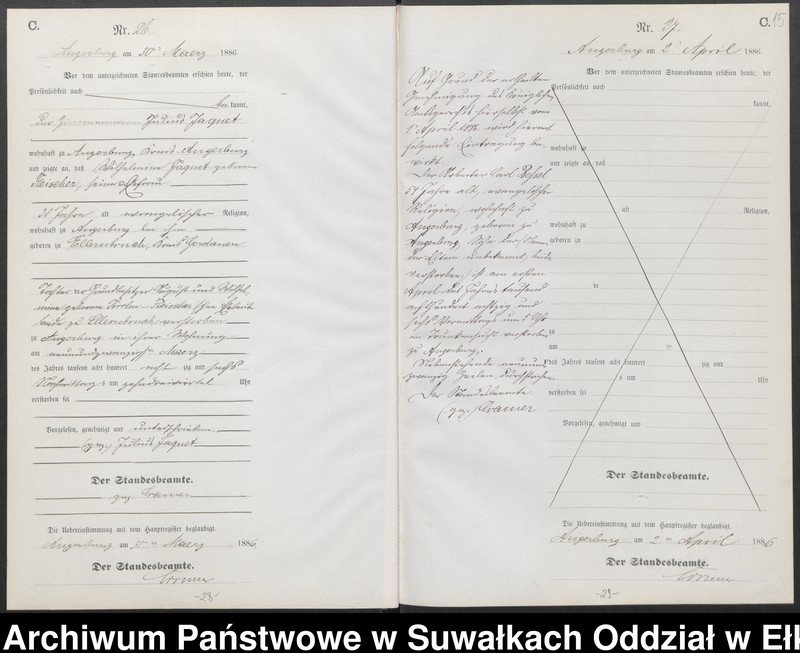 C.
Nr. 26.
Angerburg am 30ᵗ Maerz 1886.
Vor dem unterzeichneten Standesbeamten erschien heute, der
Persönlichkeit nach
kannt,
der Zimmermann Julius Jaquet
wohnhaft zu Angerburg, Kreis Angerburg
und zeigte an, daß Wilhelmine Jaquet geborene
Reischer, seine Ehefrau
31 Jahre alt evangelischer Religion,
wohnhaft zu Angerburg bei ihm
geboren zu Ellernbruch, Kreis Gerdauen
Tochter der Grundbesitzer August und Wilhel
mine geborene Reischer'schen Eheleute
beide zu Ellernbruch verstorben
zu Angerburg in ihrer Wohnung
am neunundzwanzigsten Maerz
des Jahres tausend acht hundert achtzig und sechs
Nachmittags um Uhr
verstorben sei
Vorgelesen, genehmigt und unterschrieben.
(gez.) Julius Jaquet
Der Standesbeamte.
gez. Cramer
Die Uebereinstimmung mit dem Hauptregister beglaubigt.
Angerburg am 30 ten Maerz 1886.
Der Standesbeamte.
Cramer
-28-
C. 15
Nr. 27.
Angerburg am 2ᵗ April 1886.
Vor dem unterzeichneten Standesbeamten erschien heute, der
Persönlichkeit nach
kannt,
wohnhaft zu
und zeigte an, daß
alt Religion,
wohnhaft zu
geboren zu
de
zu
am ten
des Jahres tausend acht hundert zig und
um Uhr
verstorben sei
Vorgelesen, genehmigt und
Auf Grund der ertheilten
Genehmigung des Königlichen
Amtsgerichts hierselbst vom
1. April wird hiermit
folgende Eintragung be
wirkt.
Der Arbeiter Carl
54 Jahre alt, evangelischer
Religion, wohnhaft zu
Angerburg, geboren zu
Angerburg, Sohn der Namen
der Eltern unbekannt, beide
verstorben, ist am ersten
April des Jahres tausend
achthundert achtzig und
sechs Vormittags um 5 Uhr
verstorben
zu Angerburg.
Nebenstehende neunund
zwanzig Zeilen durchstrichen.
Der Standesbeamte
(gez.) Cramer
Der Standesbeamte.
Die Uebereinstimmung mit dem Hauptregister beglaubigt.
Angerburg am 2 ten April 1886
Der Standesbeamte.
Cramer
-29-
Archiwum Państwowe w Suwałkach Oddział w Ełk